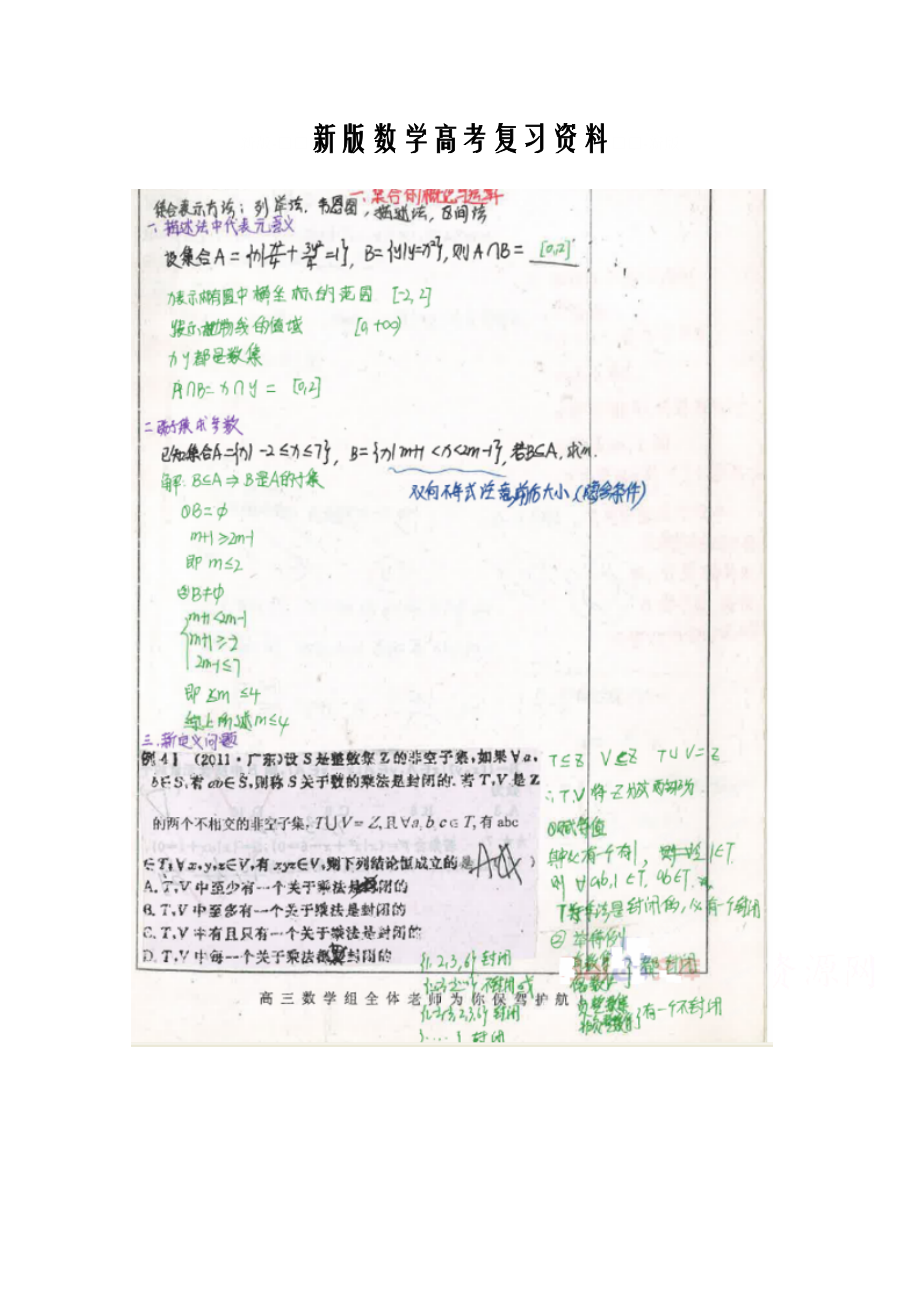 新版数学高考复习资料
一.集合的概念与运算
集合表示方法：列举法，韦恩图，描述法，区间法
一.描述法中代表元意义
设集合A={x|x²/4+3y²/4=1}, B={y|y=x²}, 则A∩B= [0,2]
x表示椭圆中横坐标的范围 [-2,2]
y表示抛物线的值域 [0,+∞)
x y都是数集
A∩B= x∩y = [0,2]
二.子集求参数
已知集合A={x|-2≤x≤7}, B={x|m+1<x<2m-1}, 若B⊆A, 求m.
解: B⊆A⇒B是A的子集
双向不等式注意前后大小(隐含条件)
①B=∅
m+1≥2m-1
即 m≤2
②B≠∅
m+1<2m-1
m+1≥-2
2m-1≤7
即 2<m≤4
综上所述m≤4
三.新定义问题
例4】(2011·广东)设S是整数集Z的非空子集,如果∀a,
b∈S,有ab∈S,则称S关于数的乘法是封闭的.若T,V是Z
的两个不相交的非空子集,T∪V=Z,且∀a,b,c∈T,有abc
∈T;∀x,y,z∈V,有xyz∈V,则下列结论恒成立的是 A )
A.T,V中至少有一个关于乘法是封闭的
B.T,V中至多有一个关于乘法是封闭的
C.T,V中有且只有一个关于乘法是封闭的
D.T,V中每一个关于乘法都是封闭的
T⊆Z V⊆Z T∪V=Z
∴T,V将Z分成两部分
①赋特值
其中必有一个有1, 1∈T
则 ∀a,b,1∈T, ab∈T
是封闭的,必有一个封闭
②举特例
都封闭
有一个不封闭
{1,2,3,6}封闭
不封闭 或
封闭
{……}封闭
高三数学组全体老师为你保驾护航